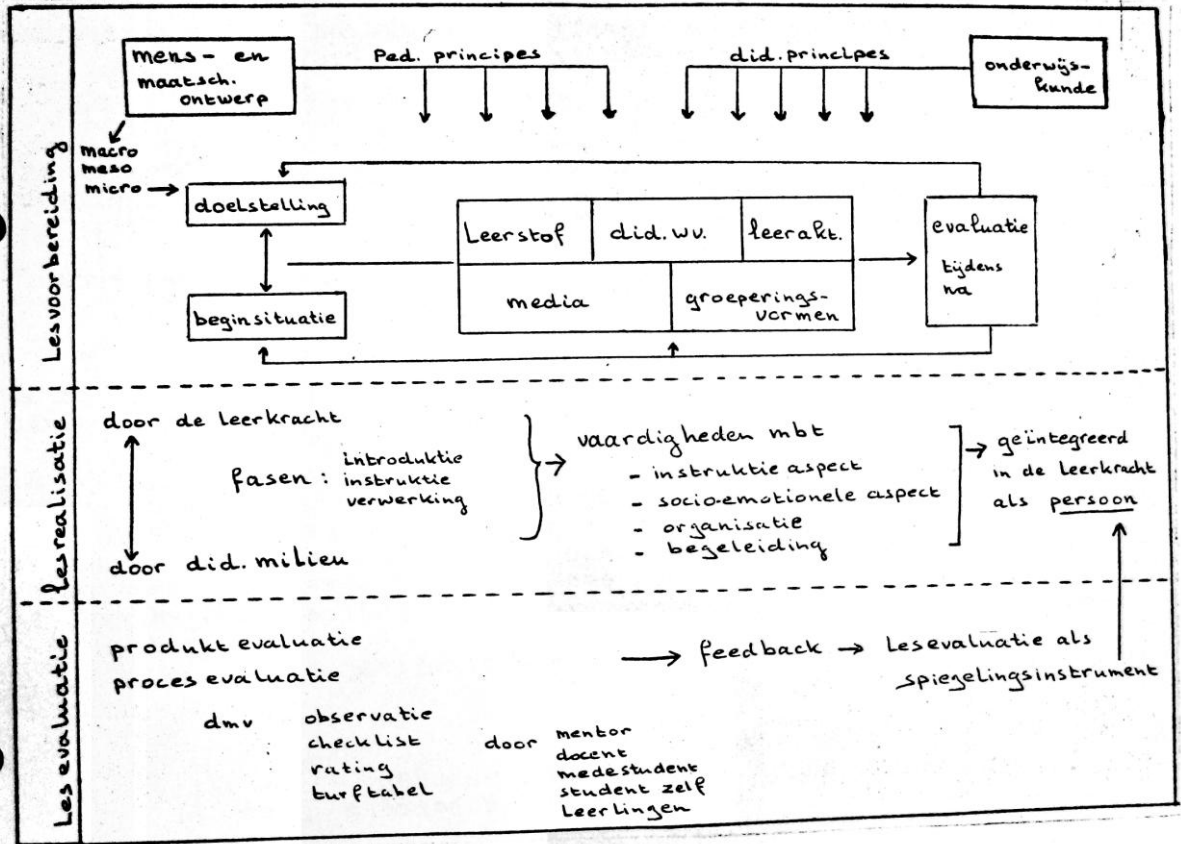 Lesvoorbereiding
mens- en
maatsch.
ontwerp
Ped. principes
did. principes
onderwijs-
kunde
macro
meso
micro
doelstelling
beginsituatie
Leerstof
did. wv.
leerakt.
media
groeperings-
vormen
evaluatie
tijdens
na
lesrealisatie
door de leerkracht
fasen:
introduktie
instruktie
verwerking
door did. milieu
vaardigheden mbt
- instruktie aspect
- socio-emotionele aspect
- organisatie
- begeleiding
geïntegreerd
in de leerkracht
als persoon
Les evaluatie
produkt evaluatie
proces evaluatie
dmv
observatie
checklist
rating
turftabel
door
mentor
docent
medestudent
student zelf
Leerlingen
feedback
Lesevaluatie als
spiegelingsinstrument